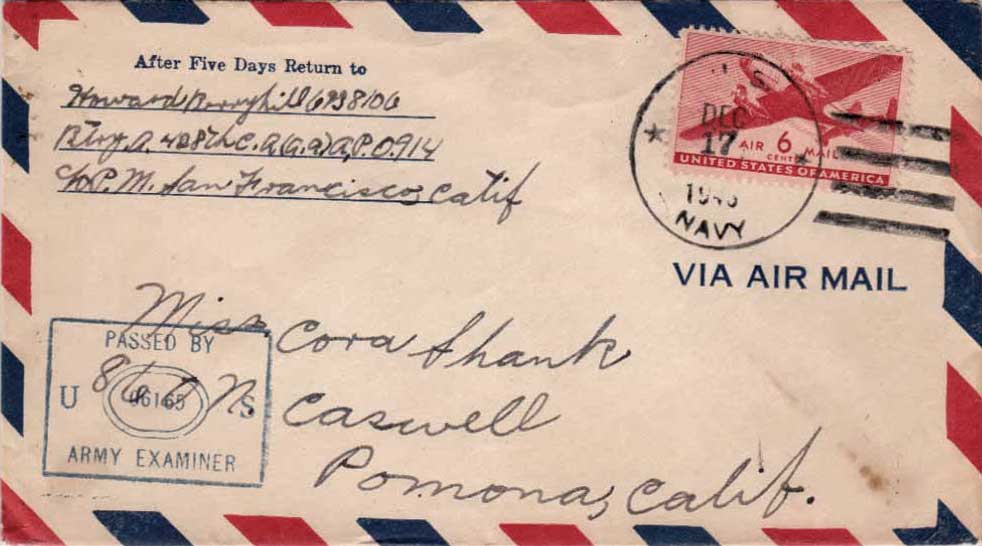 After Five Days Return to
Howard Berryhill 6938106
Btry. A. 428th C. A. (G. a) A.P.O. 914
c/o P. M. San Francisco, Calif
U. S.
DEC
17
NAVY
AIR 6 MAIL
CENTS
UNITED STATES OF AMERICA
VIA AIR MAIL
Miss. Cora Shank
N. Caswell
Pomona, Calif.
PASSED BY
U 06165 S
ARMY EXAMINER